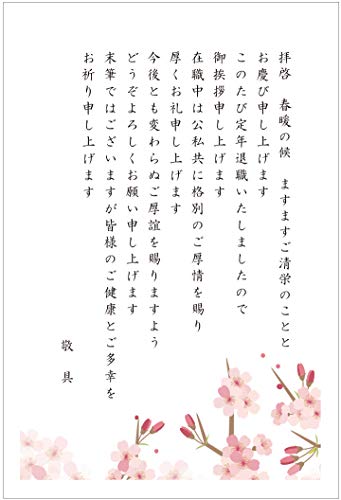 拝啓　春暖の候　ますますご清栄のことと
お慶び申し上げます
このたび定年退職いたしましたので
御挨拶申し上げます
在職中は公私共に格別のご厚情を賜り
厚くお礼申し上げます
今後とも変わらぬご厚誼を賜りますよう
どうぞよろしくお願い申し上げます
末筆ではございますが皆様のご健康とご多幸を
お祈り申し上げます
敬具